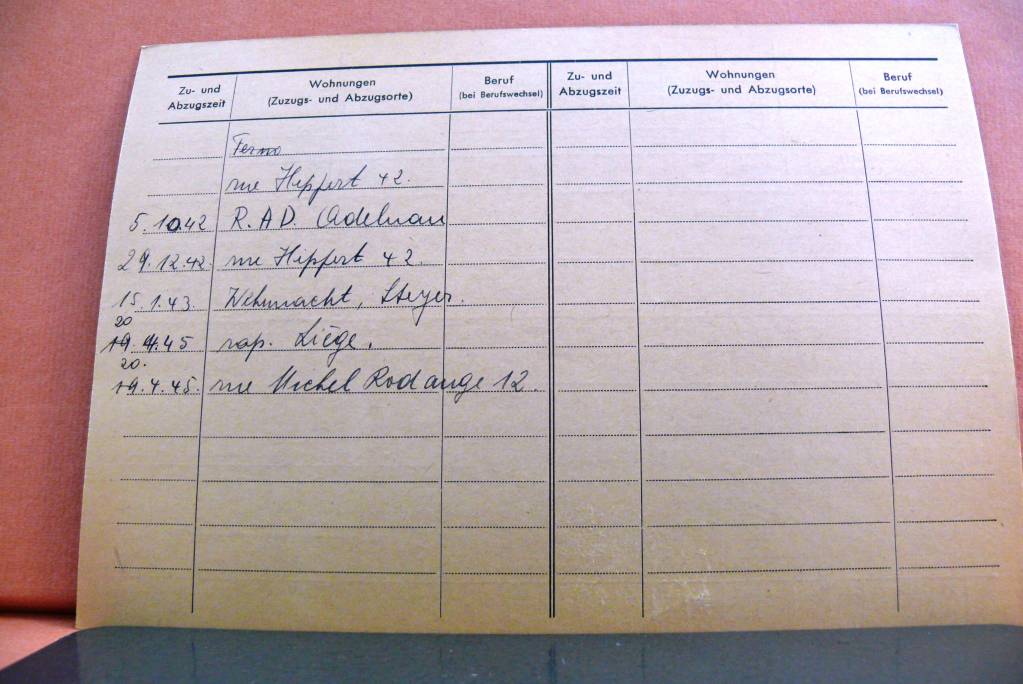 Zu- und Abzugszeit
Wohnungen
(Zuzugs- und Abzugsorte)
Beruf
(bei Berufswechsel)
Zu- und Abzugszeit
Wohnungen
(Zuzugs- und Abzugsorte)
Beruf
(bei Berufswechsel)
rue Hippert 42.
5.10.42 R.A.D.
29.12.42. rue Hippert 42.
15.1.43. Wehrmacht, Steyer.
20
19.4.45 rap. Liège.
20.
19.4.45. rue Michel Rodange 12.